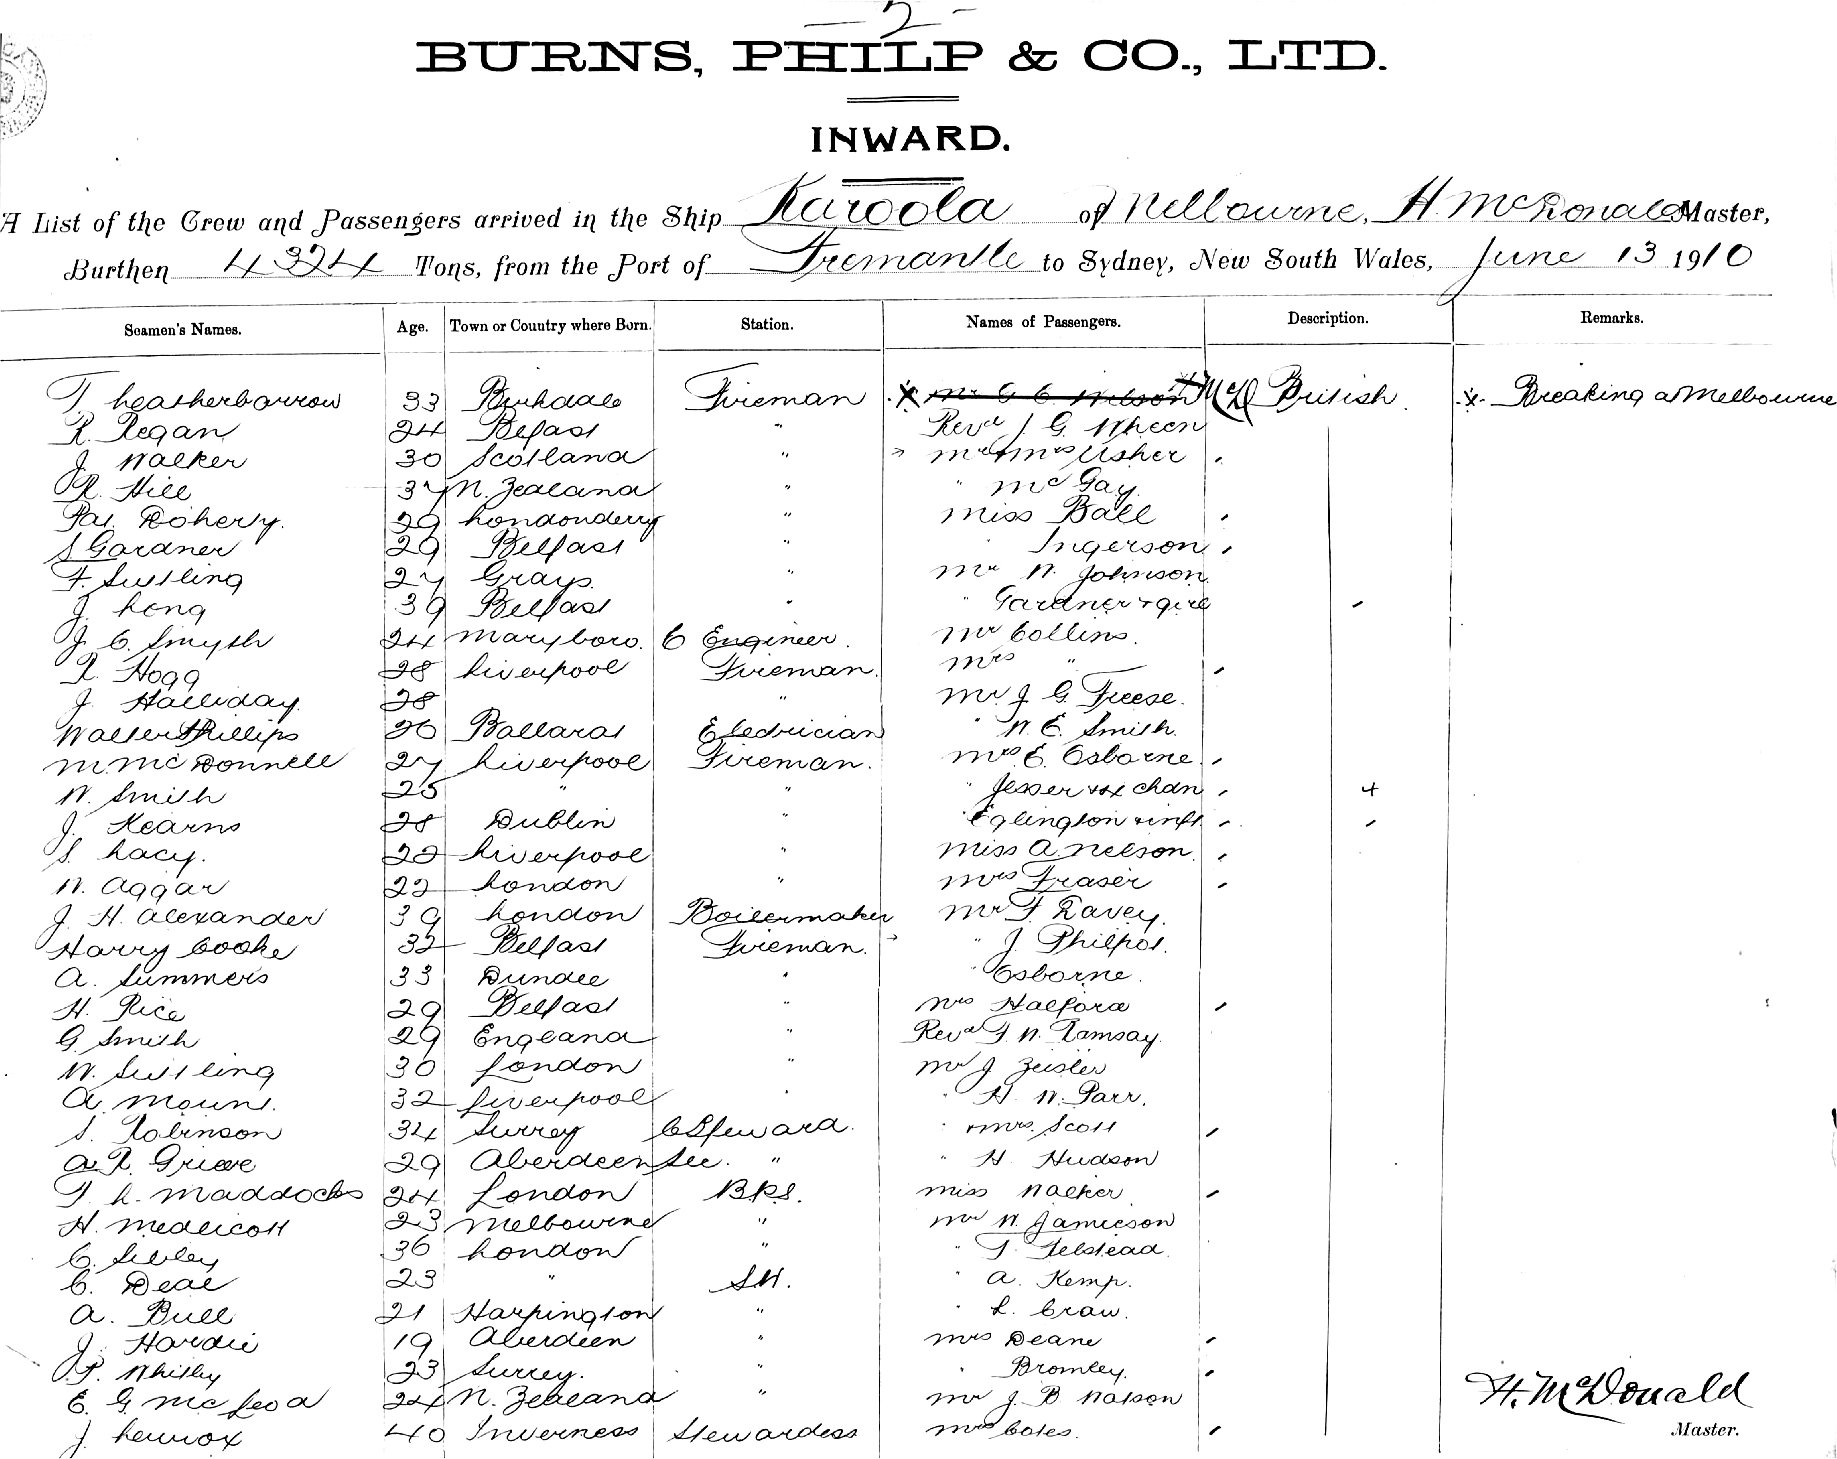 - 2 -
BURNS, PHILP & CO., LTD.
INWARD.
A List of the Crew and Passengers arrived in the Ship Karoola of Melbourne, H. McDonald Master,
Burthen 4324 Tons, from the Port of Fremantle to Sydney, New South Wales, June 13 1910
Seamen's Names. Age. Town or Country where Born. Station. Names of Passengers. Description. Remarks.
T Leatherbarrow 33 Birkdale Fireman x Mr C C Wilson McD British x Breaking at Melbourne
R. Regan 24 Belfast " Revd J. G. Wheen
J. Walker 30 Scotland " " Mr & Mrs Usher
R. Hill 37 N. Zealand " " McGay
Pat. Doherty. 29 Londonderry " Miss Ball
S Gardner 29 Belfast " " Ingerson
F. Sutling 27 Grays. " Mr W. Johnson
J. Long 39 Belfast " " Gardner & girl
J. C. Smyth 24 Maryboro. C Engineer. Mr Collins.
R. Hogg 28 Liverpool Fireman. Mrs "
J. Halliday. 28 " Mr J G Freese.
Walter Phillips 26 Ballarat Electrician " W. E. Smith.
M. McDonnell 27 Liverpool Fireman. Mrs E. Osborne.
W. Smith 25 " " " Jesser & 4 chdn 4
J. Kearns 28 Dublin " " Eglington & inft
S. Lacy. 22 Liverpool " Miss A. Nelson.
W. Aggar 22 London " Mrs Fraser
J. H. Alexander 39 London Boilermaker Mr F. Davey.
Harry Cooke 32 Belfast Fireman. " J. Philpot.
A. Summers 33 Dundee " " Osborne.
H. Rice 29 Belfast " Mrs Halford
G. Smith 29 England " Revd F. W. Ramsay.
W. Sutling 30 London " Mr J Zeisler
A. Mount. 32 Liverpool " " H. W. Parr.
S. Robinson 34 Surrey C Steward. " & Mrs. Scott
A. R. Grieve 29 Aberdeen Sec. " " H. Hudson
T. L. Maddocks 24 London BKS. Miss Walker
H. Medlicott 23 Melbourne " Mr W. Jamieson
C. Sibley 36 London " " T. Felstead.
C. Deal 23 " SW. " A. Kemp.
A. Bull 21 Harpington " " L. Craw.
J. Hardie 19 Aberdeen " Mrs Deane
P. Whitby 23 Surrey. " " Bromley.
E. G. McLeod 24 N. Zealand " Mr J. B Watson
J. Lennox 40 Inverness Stewardess Mrs Coles.
H. McDonald
Master.